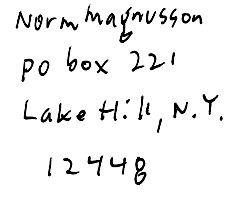 Norm Magnusson
PO box 221
Lake Hill, N.Y.
12448